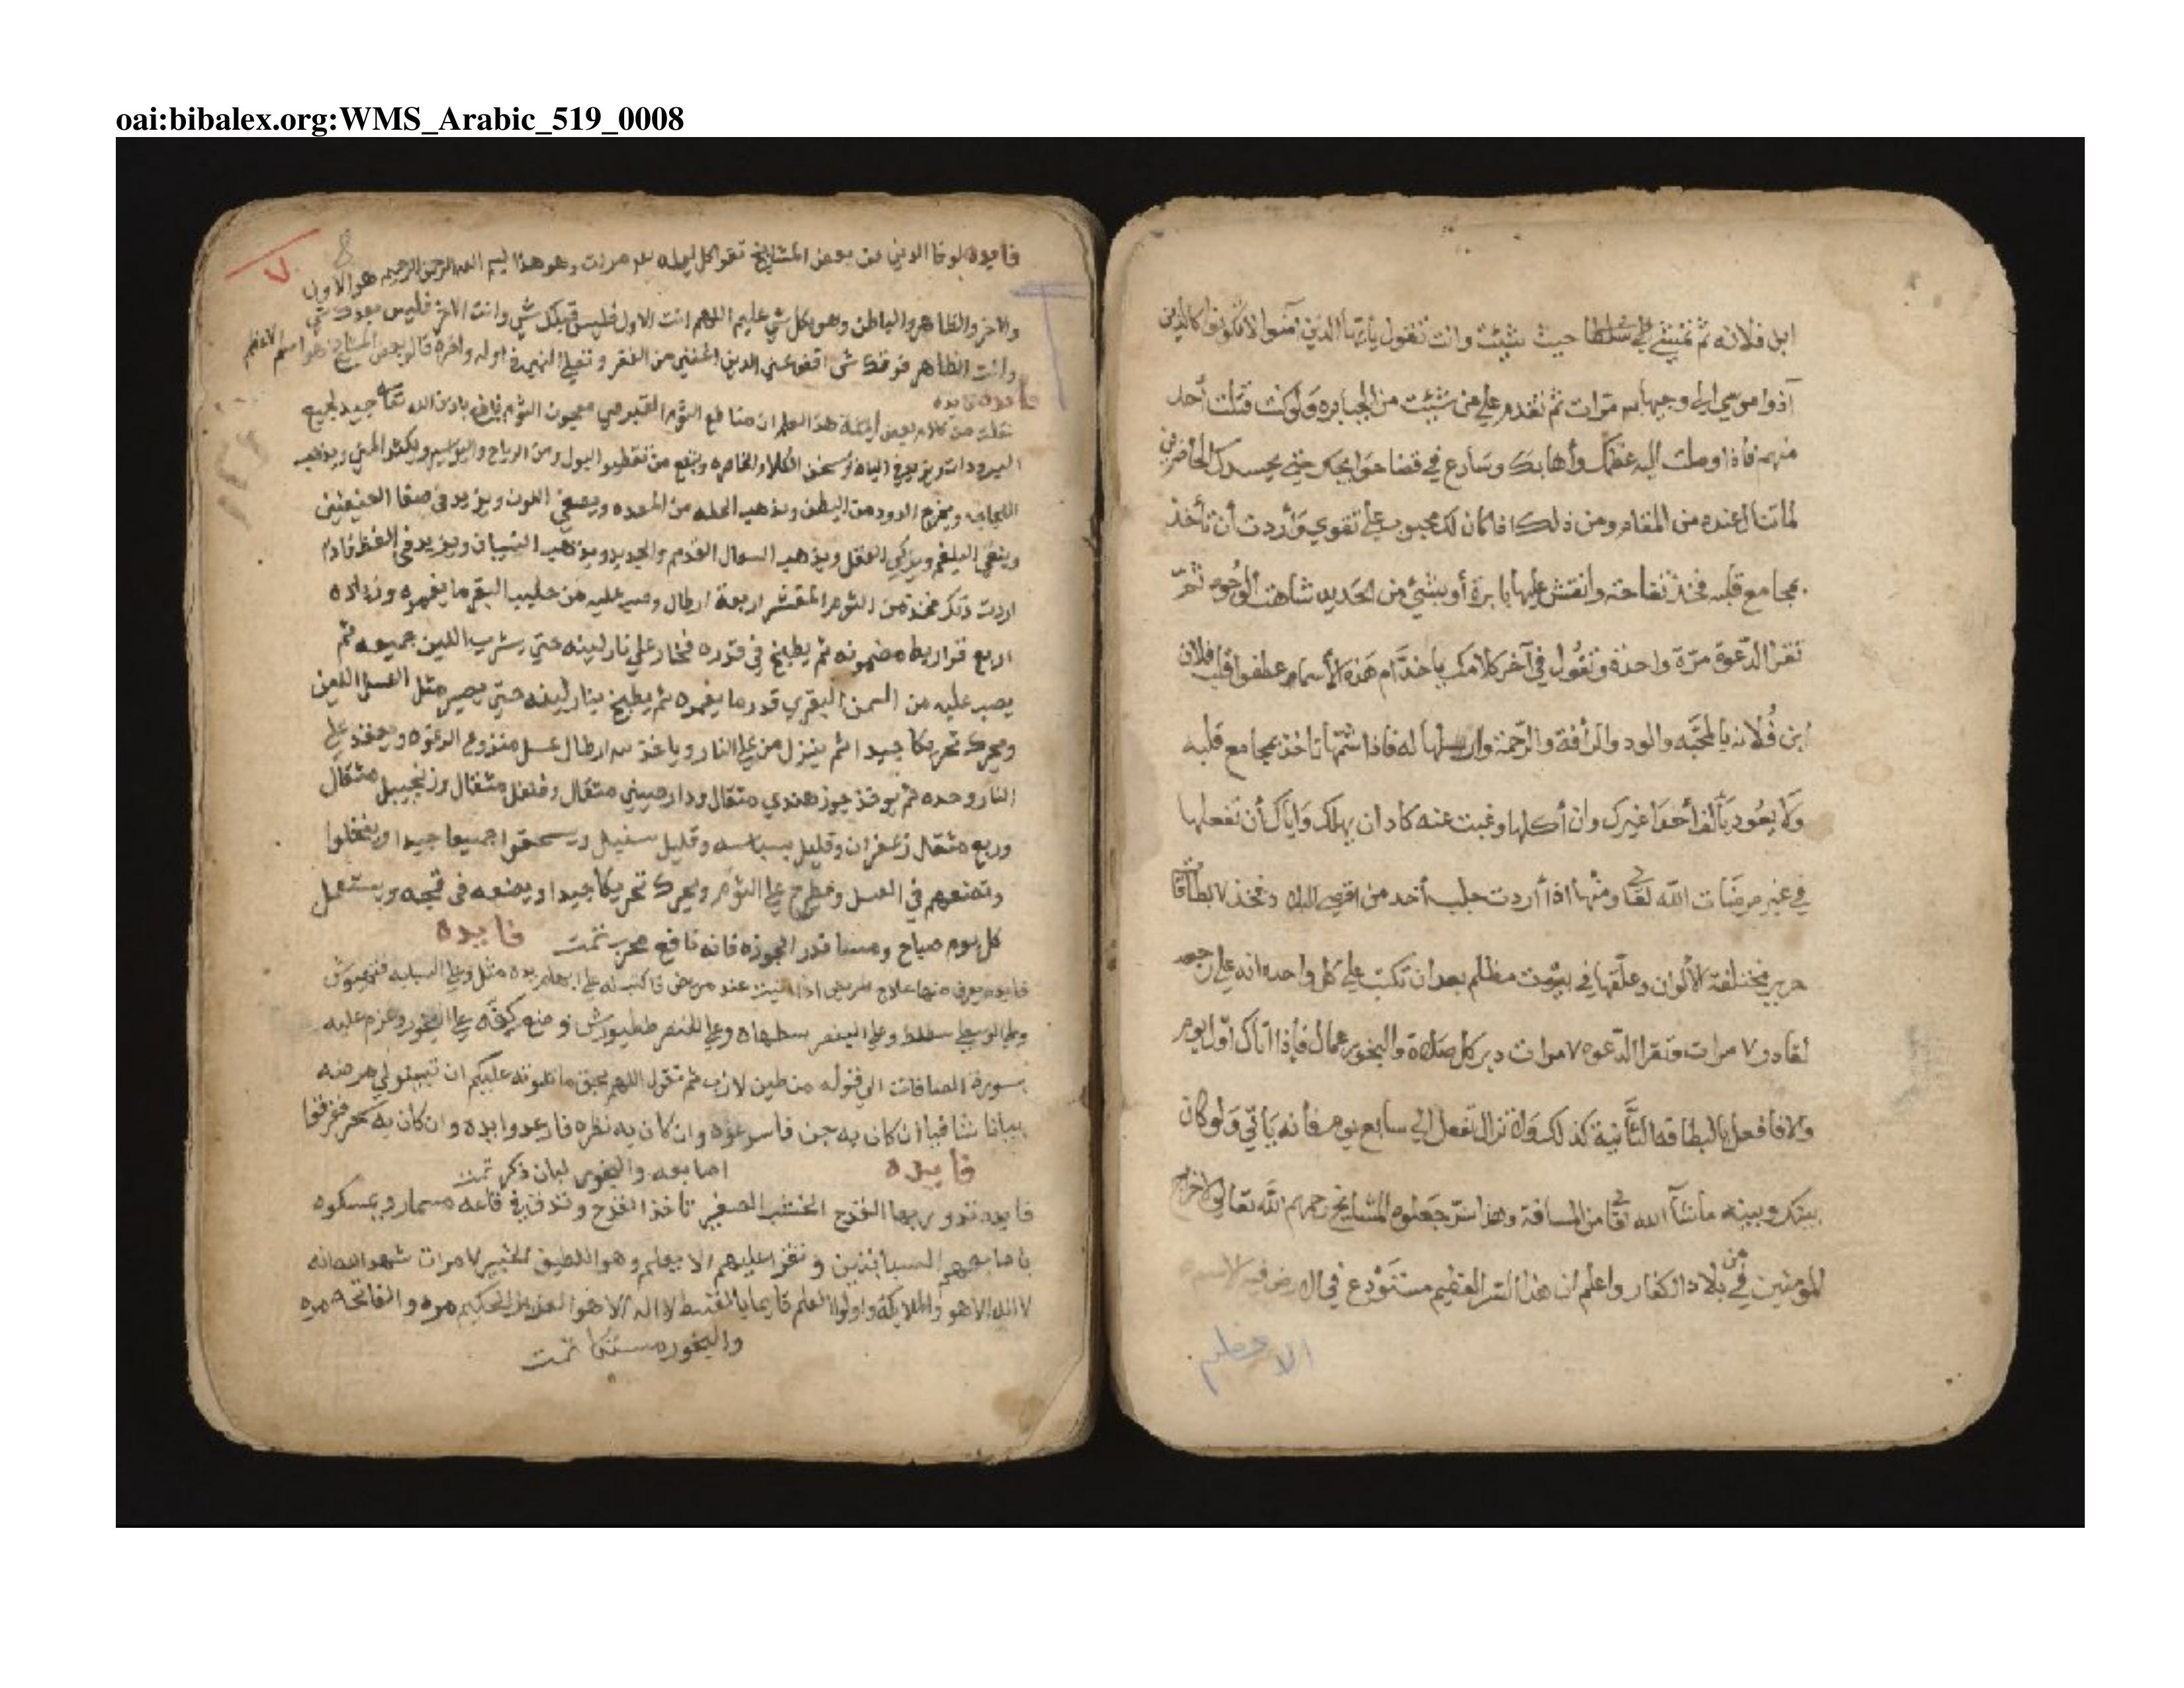 oai:bibalex.org:WMS_Arabic_519_0008
ابن فلانه ثم تمشي حيث شئت وانت تقول يا أيها الذين آمنوا لا تكونوا كالذين
آذوا موسى الى وجيها مرات ثم تقدم على من شئت من الجبابره ولو كنت قتلت أحد
منهم فاذا وصلت اليه عظمك وأهابك وسارع في قضا حوايجك حتى يحسدك الحاضرين
لما تنال عنده من المقام ومن ذلك اذا كان لك محبوب على تقوي وأردت أن تأخذ
بمجامع قلبه فخذ تفاحة وانقش عليها بابرة أو بشئ من الحديد شاهت الوجوه ثم
تقرا الدعوة مرة واحدة وتقول في آخر كلامك يا خدام هذه الأسماء عطفوا قلب فلان
ابن فلانه بالمحبه والود والرأفة والرحمة وارسلها له فاذا شمها تاخذ بمجامع قلبه
ولا يعود يألف أحدا غيرك وان أكلها وغبت عنه كاد ان يهلك واياك أن تفعلها
في غير مرضات الله تعا ومنها اذا أردت جلب أحد من اقصى البلاد فخذ ٧ بطاقا
حرير مختلفة الألوان وعلقها في بيت مظلم بعد ان تكتب على كل واحده انه على رجعه
لقادر ٧ مرات وتقرا الدعوه ٧ مرات دبر كل صلاة والبخور عمال فإذا أتاك أول يوم
والا فافعل بالبطاقه الثانية كذلك ولا تزال تفعل الى سابع يوم فأنه يأتي ولو كان
بينك وبينه ما شآ الله تعا من المسافة وهذا سر جعلوه المشايخ رحمهم الله تعالى لاخراج
المومنين من بلاد الكفار واعلم ان هذا السر العظيم مستودع في الارض فيه الاسم
الاعظم
٧
8
فايده لوفا الدين من بعض المشايخ تقرا كل ليله مرات وهو هذا بسم الله الرحمن الرحيم هو الاول
والاخر والظاهر والباطن وهو بكل شي عليم اللهم انت الاول فليس قبلك شي وانت الاخر فليس بعدك شي
وانت الظاهر فوقك شي اقض عني الدين اغنني من الفقر وتصلي النبي في اوله واخره قال بعض المشايخ هو اسم الاعظم
فايده
نقلت من كلام بعض هذا العلم ان منافع الثوم معجون الثوم نافع باذن الله تعا جيد لجميع
البرودات ويزيد في الباه ويسخن الكلا والخاصره وينفع من تقطير البول ومن الرياح والبواسير ويكثر المني ويذهب
ويخرج الدود من البطن ويذهب من المعده ويصفي اللون ويزيد في صفا العينين
وينقي البلغم ويزكي العقل ويذهب السعال القديم والجديد ويذهب النسيان ويزيد في الحفظ فاذا
اردت ذلك فخذ من الثوم المقشر اربعة ارطال وصب عليه من حليب البقر ما يغمره وزياده
اربع قراريط مضمونه ثم يطبخ في قدره فخار على نار لينه حتى يشرب اللبن جميعه ثم
يصب عليه من السمن البقري قدر ما يغمره ثم يطبخ بنار لينه حتى يصير مثل العسل اللين
ويحرك تحريكا جيدا ثم ينزل من على النار وياخذ ارطال عسل منزوع الرغوه ويعقد على
النار وحده ثم يوخذ جوز هندي مثقال ودار صيني مثقال وفلفل مثقال وزنجبيل مثقال
وربع مثقال زعفران وقليل بسباسه وقليل سنبل ويسحقوا جميعا جيدا وينخلوا
وتضعهم في العسل ويطرح على الثوم ويحرك تحريكا جيدا ويضعه في ويستعمل
كل يوم صباح ومسا قدر الجوزه فانه نافع مجرب تمت فايده
فايده يعرف منها علاج المريض اذا اتيت عند مريض فاكتب له على ابهام يده مثل وعلى السبابه
وعلى الوسطى وعلى البنصر وعلى الخنصر وضع كفه على البخور وعزم عليه
بسورة الصافات الى قوله من طين لازب ثم تقول اللهم بحق ما تلوته عليكم ان تبينو لي مرضه
بيانا شافيا ان كان به جن فاسرعوه وان كان به نظره فارعدوا يده وان كان به سحر ففرقعوا
اصابعه والبخور لبان ذكر تمت فايده
فايده تدوير بها القدح الخشب الصغير تاخذ القدح وتدق في قاعه مسمار ويمسكوه
باصابعهم السبابتين وتقرا عليهم الا يعلم وهو اللطيف الخبير ٧ مرات شهد الله انه
لا اله الا هو والملايكة واولوا العلم قايما بالقسط لا اله الا هو العزيز الحكيم مره والفاتحه مره
والبخور مستكا تمت